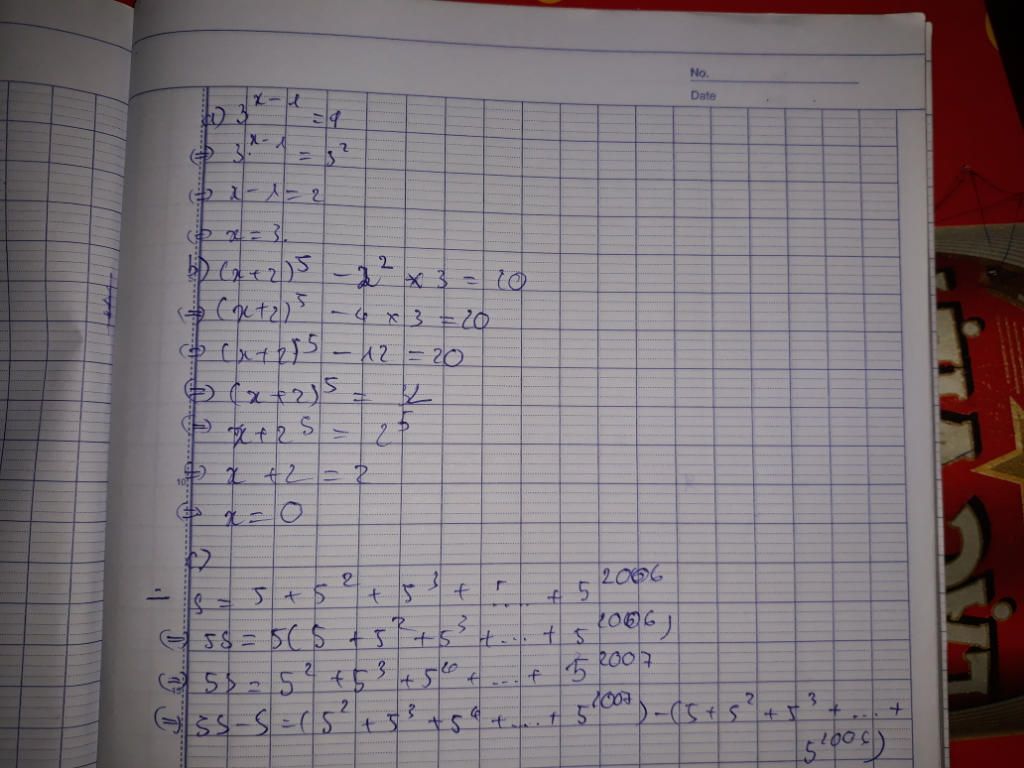 No.
Date
a) 3^{x-1} = 9
(=) 3^{x-1} = 3^2
(=) x - 1 = 2
(=) x = 3.
b) (x+2)^5 - 2^2 × 3 = 20
(=) (x+2)^5 - 4 × 3 = 20
(=) (x+2)^5 - 12 = 20
(=) (x+2)^5 =
(=) x+2^5 = 2^5
(=) x + 2 = 2
(=) x = 0
c)
S = 5 + 5^2 + 5^3 + .... + 5^{2006}
(=) 5S = 5(5 + 5^2 + 5^3 + ... + 5^{2006})
(=) 5S = 5^2 + 5^3 + 5^4 + ... + 5^{2007}
(=) 5S - S = (5^2 + 5^3 + 5^4 + ... + 5^{2007}) - (5 + 5^2 + 5^3 + ... +
5^{2006})